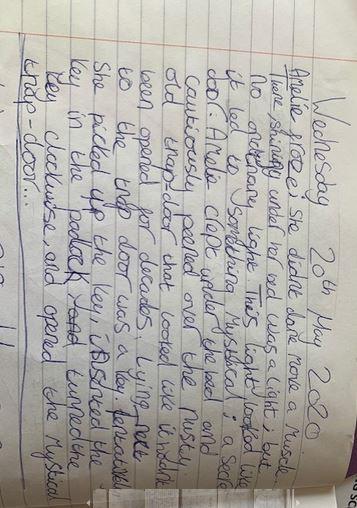 Wednesday 20th May 2020
Amelie froze: she didnt dare move a muscle
There shining under her bed was a light; but
No ordinary light. This light looked like
it led to something mystical; a secret
door. Amelie crept under the bed and
Cautiously peered over the musty
old trap-door that looked like it hadnt
been opened for decades. Lying next
to the trap door was a key.
She picked up the key, inserted the
key in the padlock and turned the
key clockwise, and opened the mystical
trap-door...